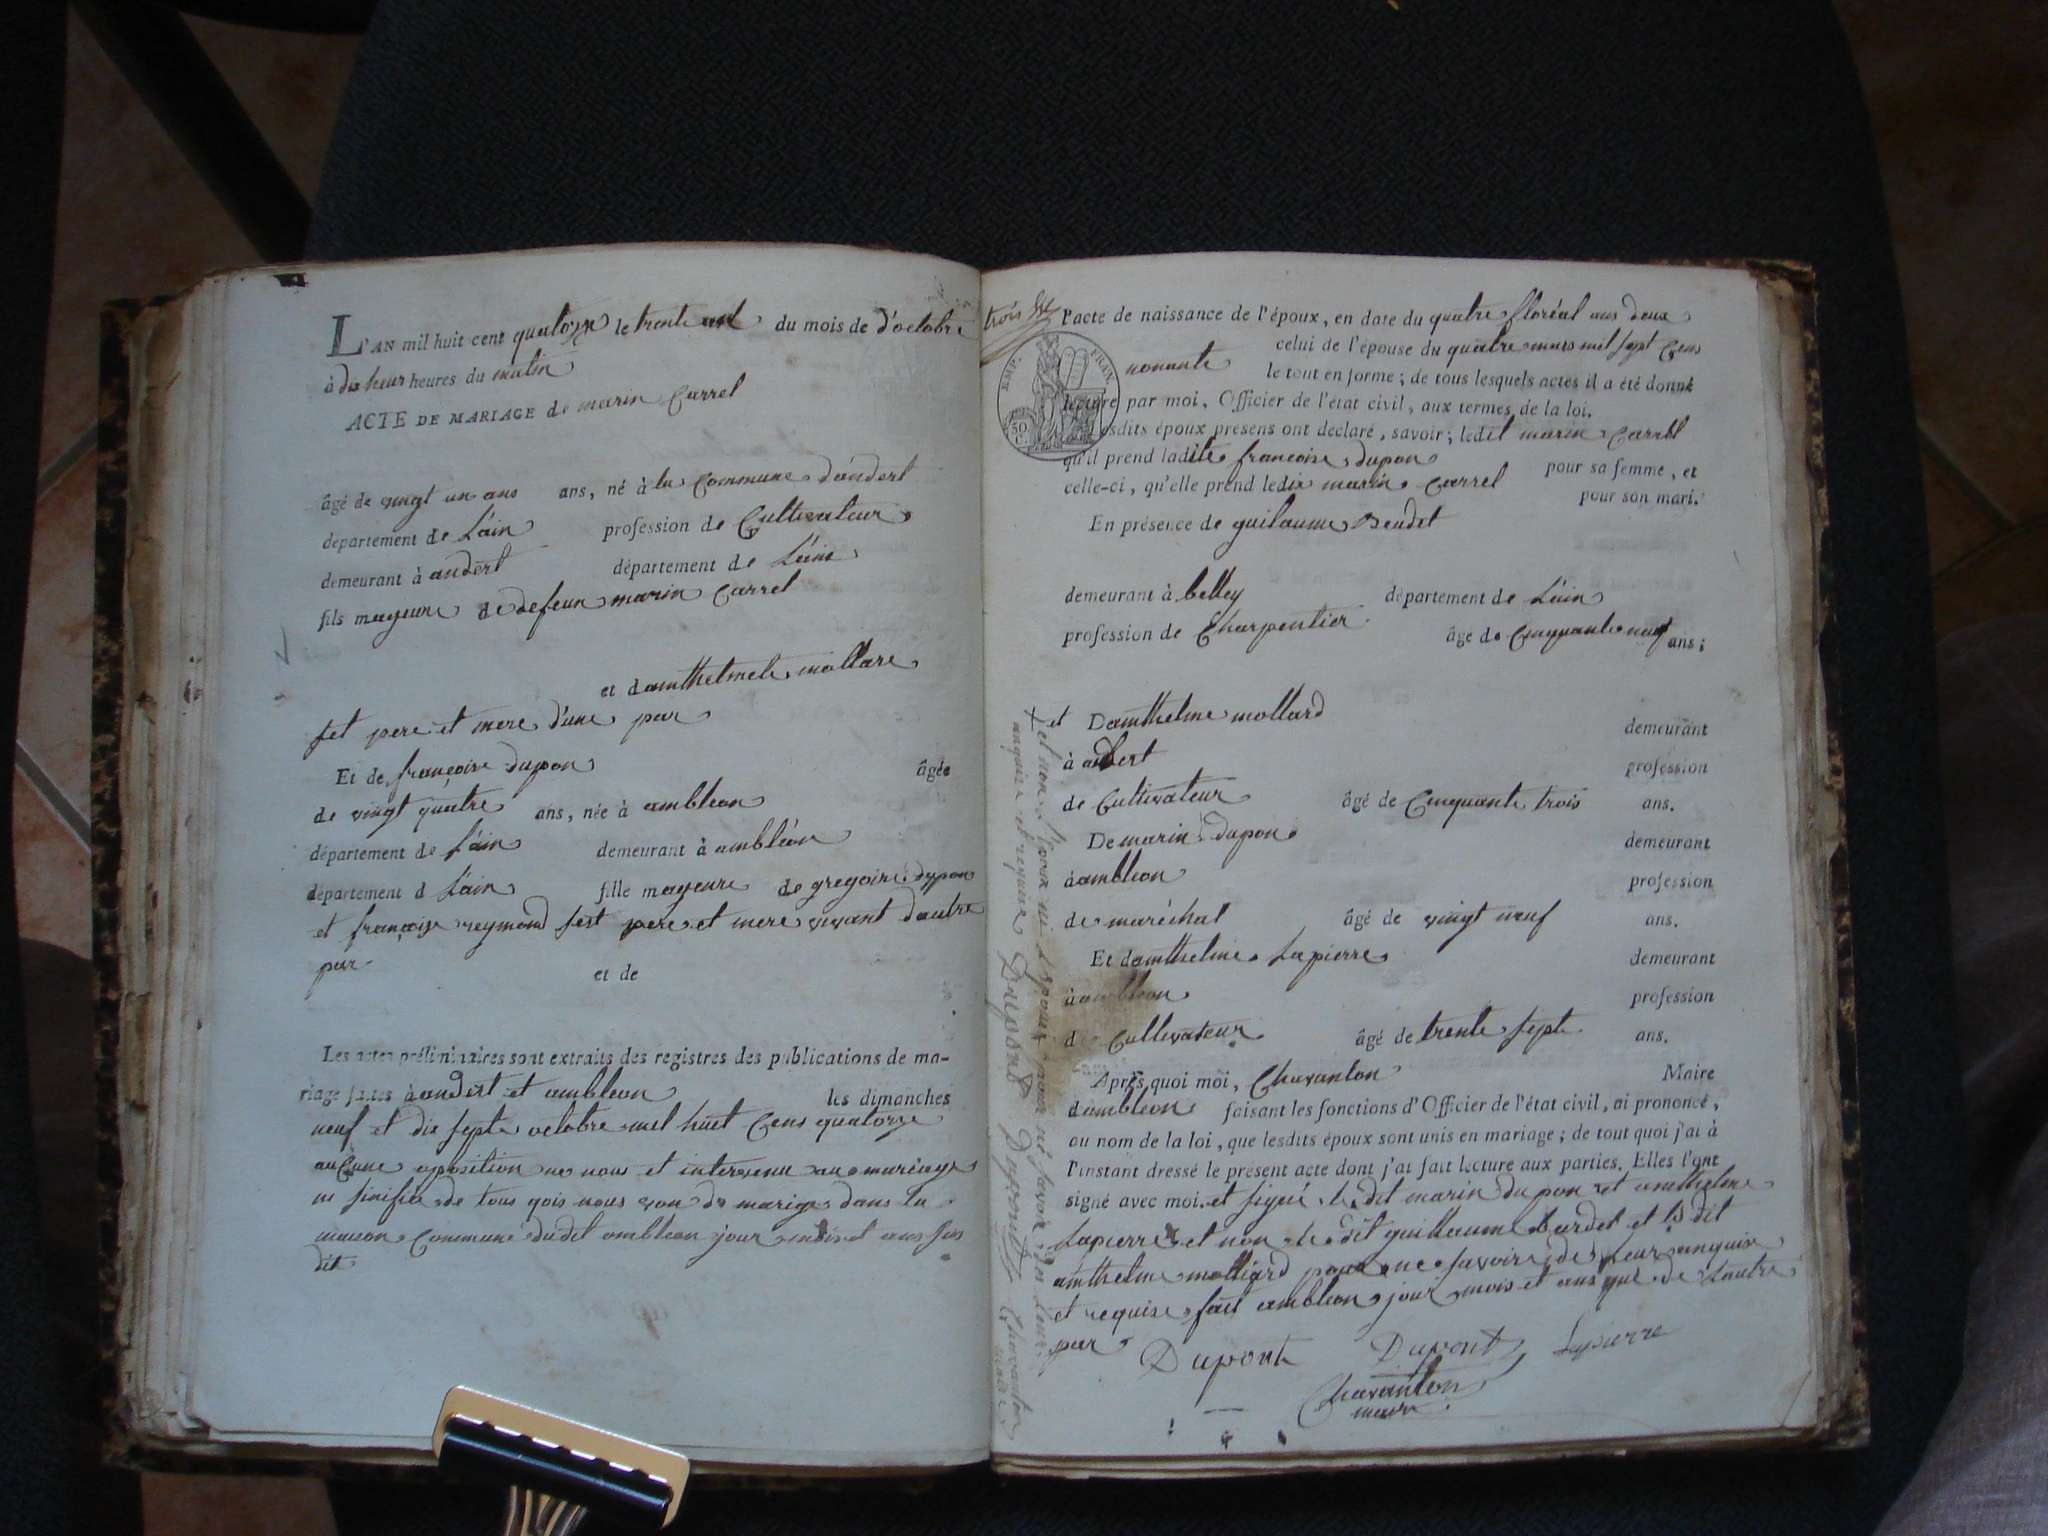 L'AN mil huit cent quatorze le trente un du mois de d'octobre
à dix heur heures du matin
ACTE DE MARIAGE de marin Carrel
âgé de vingt un ans ans, né à la Commune d'andert
département de L'ain profession de Cultivateur
demeurant à andert département de L'ain
fils mayeure de defeun marin Carrel
et d'amthelmete mollare
set pere et mere d'une par
Et de françoise dupon âgée
de vingt quatre ans, née à ambleon
département de L'ain demeurant à ambléon
département d L'ain fille mayeure de gregoire dupon
et françoise reymond set pere et mere vivant d'autre
par
et de
Les actes préliminaires sont extraits des registres des publications de ma-
riage faites à andert et ambleon les dimanches
neuf et dix septe octobre mil huit Cens quatorze
auCune oposition ne nous et intervenu au mariage
ni sinifiée de tous qois nous von de mariage dans la
maison Commune dudit ambleon jour et ans sus
dit
trois
l'acte de naissance de l'époux, en date du quatre floréal ans deux
celui de l'épouse du quatre mars mil sept Cens
nonante le tout en forme; de tous lesquels actes il a été donné
lecture par moi, Officier de l'état civil, aux termes de la loi.
EMP. FRAN.
50 C.
Lesdits époux présens ont déclaré, savoir; ledit marin Carrel
qu'il prend ladite françoise dupon pour sa femme, et
celle-ci, qu'elle prend ledit marin Carrel pour son mari.
En présence de guilaume Beudet
demeurant à belley département de L'ain
profession de Charpentier âge de Cinquante neuf ans;
et D'amthelme mollard demeurant
à andert profession
de Cultivateur âgé de Cinquante trois ans.
De marin dupon demeurant
à ambleon profession
de maréchal âgé de vingt neuf ans.
Et d'amthelme Lapierre demeurant
à ambleon profession
de Cultivateur âgé de trente sept ans.
Après quoi moi, Chavanton Maire
d'ambleon faisant les fonctions d'Officier de l'état civil, ai prononcé,
au nom de la loi, que lesdits époux sont unis en mariage; de tout quoi j'ai à
l'instant dressé le présent acte dont j'ai fait lecture aux parties. Elles l'ont
signé avec moi. et signé le dit marin dupon et amthelme
Lapierre et non le dit guillaume bardet et le dit
amthelme molliard pour ne savoire de Leur anquis
et requise fait ambleon jour mois et ans que de L'autre
par
Dupont Dupont Lapierre
Chavanton
maire
et non l'epoux ni L'epouse pour ne savoir de Leur
anquis et requise Dupont Dupont Chavanton
maire